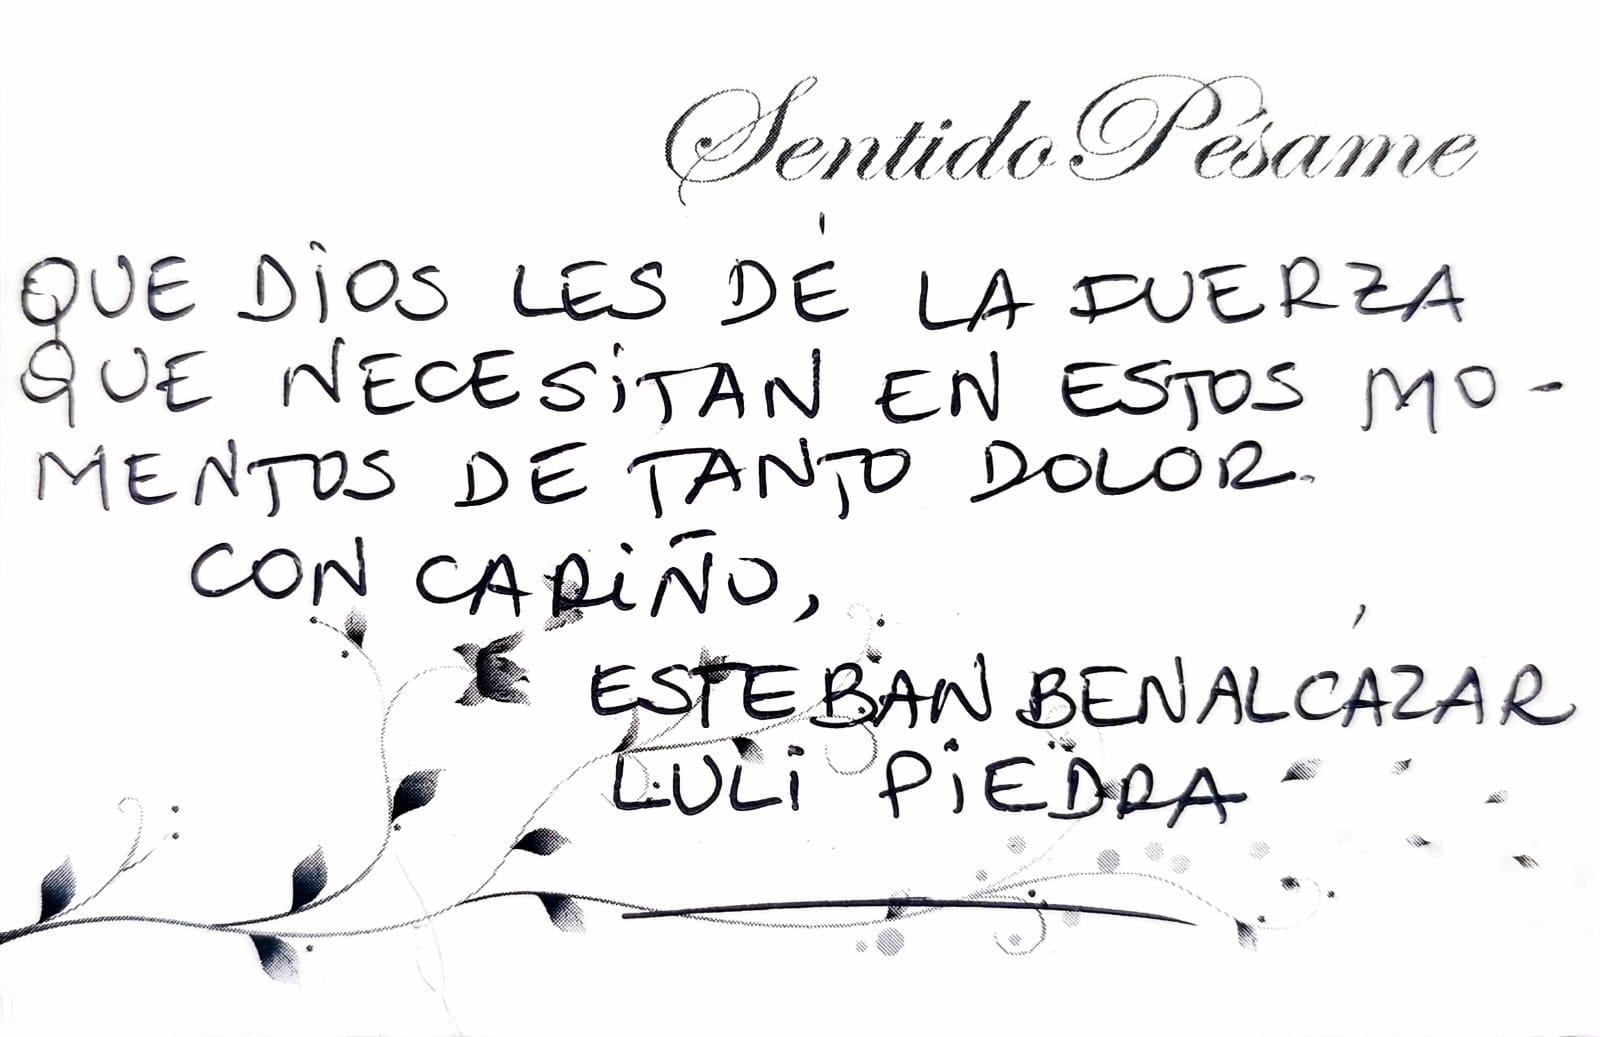 Sentido Pésame
QUE DIOS LES DÉ LA FUERZA
QUE NECESITAN EN ESTOS MO-
MENTOS DE TANTO DOLOR.
CON CARIÑO,
ESTEBAN BENALCÁZAR
LULI PIEDRA